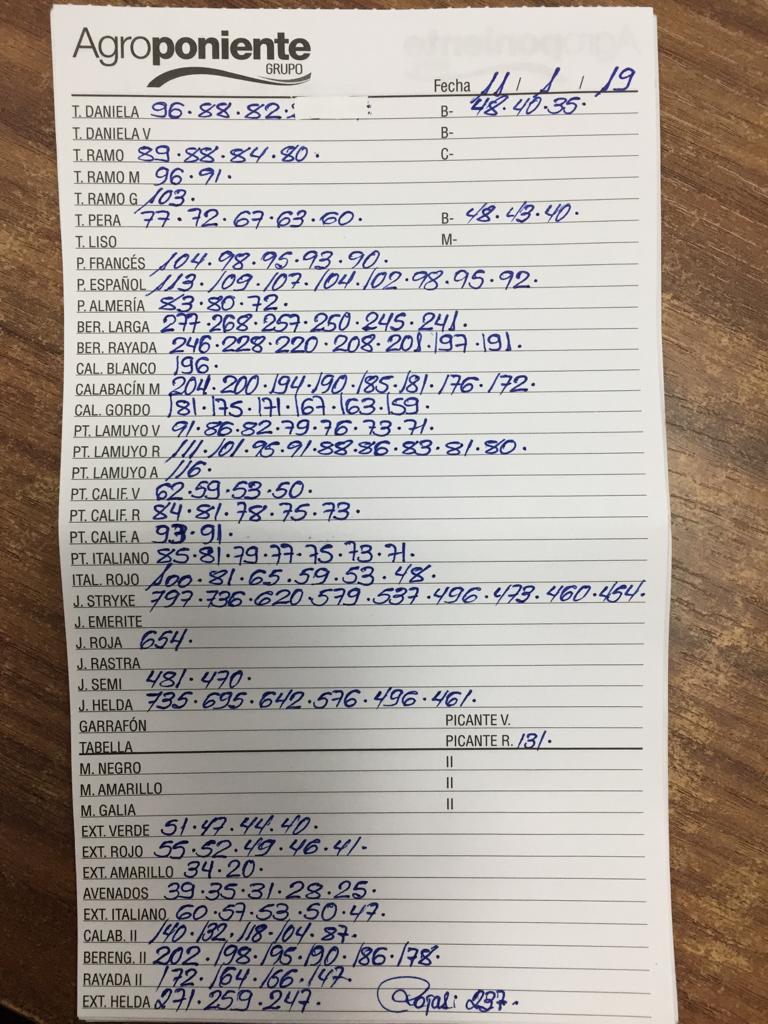 Agroponiente
GRUPO
Fecha 11 / 1 / 19
T. DANIELA 96.88.82. B- 48.40.35.
T. DANIELA V B-
T. RAMO 89.88.84.80. C-
T. RAMO M 96.91.
T. RAMO G 103.
T. PERA 77.72.67.63.60. B- 48.43.40.
T. LISO M-
P. FRANCÉS 104.98.95.93.90.
P. ESPAÑOL 113.109.107.104.102.98.95.92.
P. ALMERÍA 83.80.72.
BER. LARGA 277.268.257.250.245.241.
BER. RAYADA 246.228.220.208.201.197.191.
CAL. BLANCO 196.
CALABACÍN M 204.200.194.190.185.181.176.172.
CAL. GORDO 181.175.171.167.163.159.
PT. LAMUYO V 91.86.82.79.76.73.71.
PT. LAMUYO R 111.101.95.91.88.86.83.81.80.
PT. LAMUYO A 116.
PT. CALIF. V 62.59.53.50.
PT. CALIF. R 84.81.78.75.73.
PT. CALIF. A 93.91.
PT. ITALIANO 85.81.79.77.75.73.71.
ITAL. ROJO 100.81.65.59.53.48.
J. STRYKE 797.736.620.579.537.496.473.460.454.
J. EMERITE
J. ROJA 654.
J. RASTRA
J. SEMI 481.470.
J. HELDA 735.695.642.576.496.461.
GARRAFÓN PICANTE V.
TABELLA PICANTE R. 131.
M. NEGRO II
M. AMARILLO II
M. GALIA II
EXT. VERDE 51.47.44.40.
EXT. ROJO 55.52.49.46.41.
EXT. AMARILLO 34.20.
AVENADOS 39.35.31.28.25.
EXT. ITALIANO 60.57.53.50.47.
CALAB. II 140.132.118.104.87.
BERENG. II 202.198.195.190.186.178.
RAYADA II 172.164.166.147.
EXT. HELDA 271.259.247. Rojas: 237.